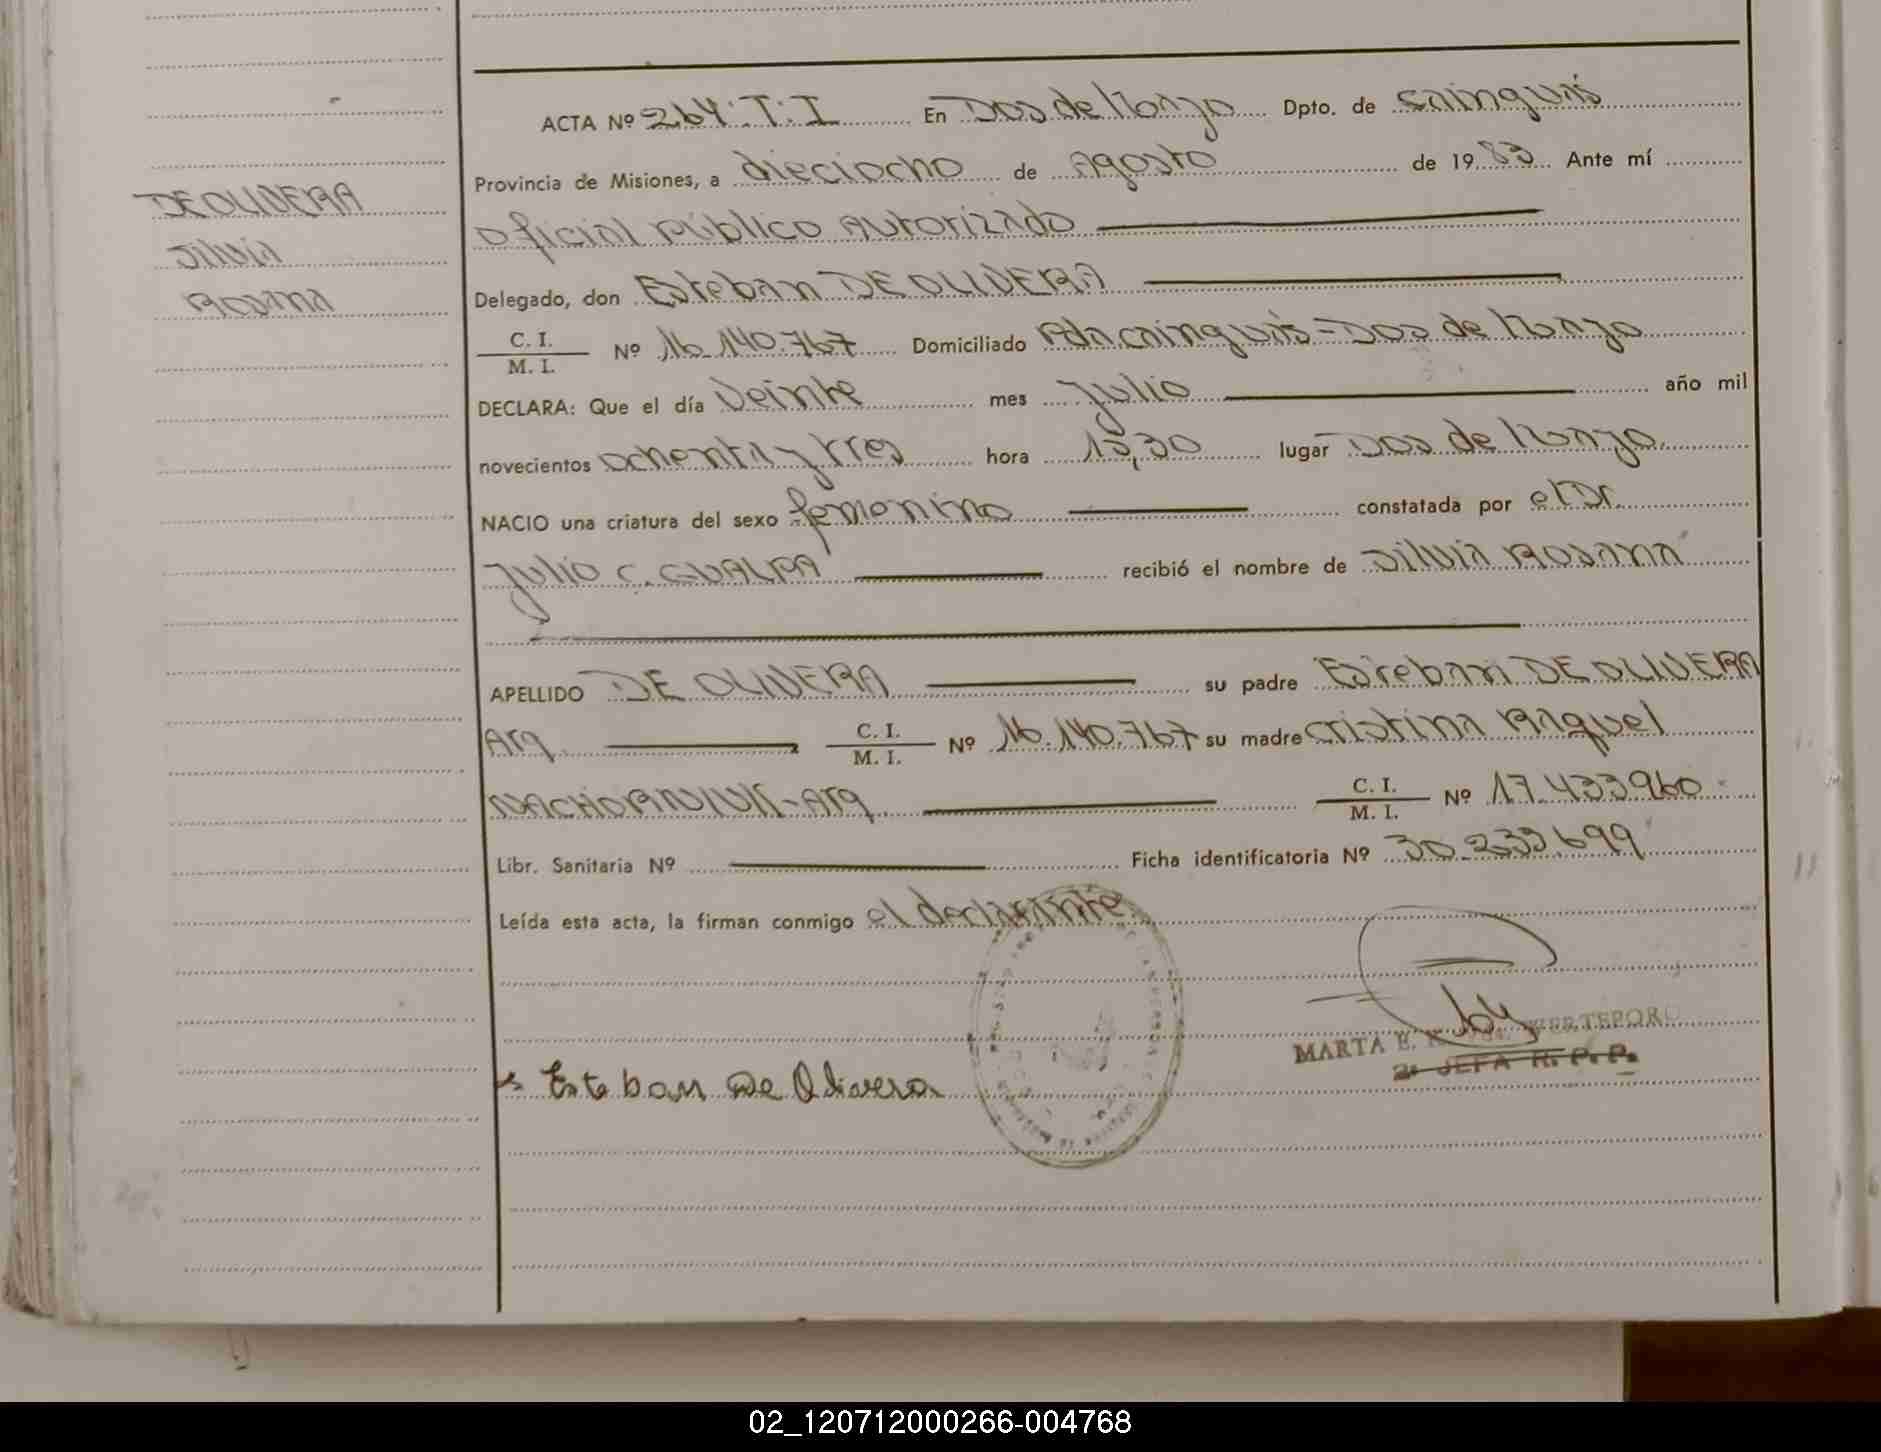 ACTA Nº 264·T·I En Dos de Mayo Dpto. de Cainguás
Provincia de Misiones, a dieciocho de Agosto de 1983 Ante mí
DE OLIVERA
Oficial Público Autorizado
Silvia
Delegado, don Esteban DE OLIVERA
Rosana
C. I. / M. I. Nº 16.140.767 Domiciliado Pda Cainguás-Dos de Mayo
DECLARA: Que el día Veinte mes Julio año mil
novecientos ochenta y tres hora 15,30 lugar Dos de Mayo
NACIO una criatura del sexo femenino constatada por el Dr.
Julio C. GUALPA recibió el nombre de Silvia Rosana
APELLIDO DE OLIVERA su padre Esteban DE OLIVERA
Arg. C. I. / M. I. Nº 16.140.767 su madre Cristina Raquel
Arg. C. I. / M. I. Nº 17.433960
Libr. Sanitaria Nº Ficha identificatoria Nº 30.239.699
Leída esta acta, la firman conmigo el declarante
MARTA E.
2º JEFA R. P. P.
Esteban De Olivera
02_120712000266-004768